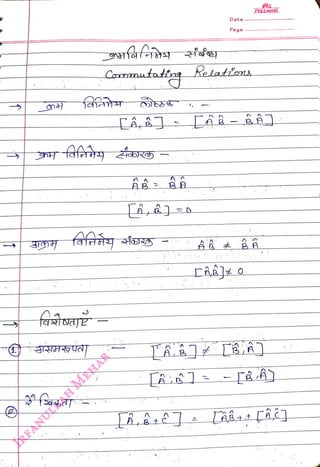 Date
Page
क्रमविनिमेय संबंध
Commutating Relations
→ क्रम विनिमेय कोष्ठक :-
[Â, B̂] = [ÂB̂ - B̂Â]
→ क्रम विनिमेय संकारक -
ÂB̂ = B̂Â
[Â, B̂] = 0
→ अक्रम विनिमेय संकारक - ÂB̂ ≠ B̂Â
[Â,B̂] ≠ 0
→ विशेषताएँ -
① असमरूपता - [Â, B̂] ≠ [B̂, Â]
[Â, B̂] = - [B̂, Â]
② रैखिकता -
[Â, B̂+Ĉ] = [ÂB̂] + [ÂĈ]
IRFANULLAH MEHAR